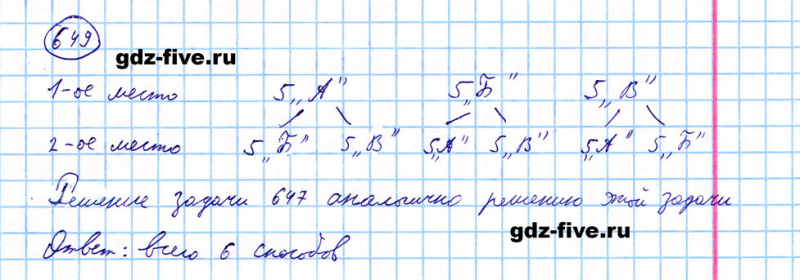 649
gdz-five.ru
1-ое место 5„А" 5„Б" 5„В"
2-ое место 5„Б" 5„В" 5„А" 5„В" 5„А" 5„Б"
Решение задачи 647 аналогично решению этой задачи
Ответ: всего 6 способов
gdz-five.ru